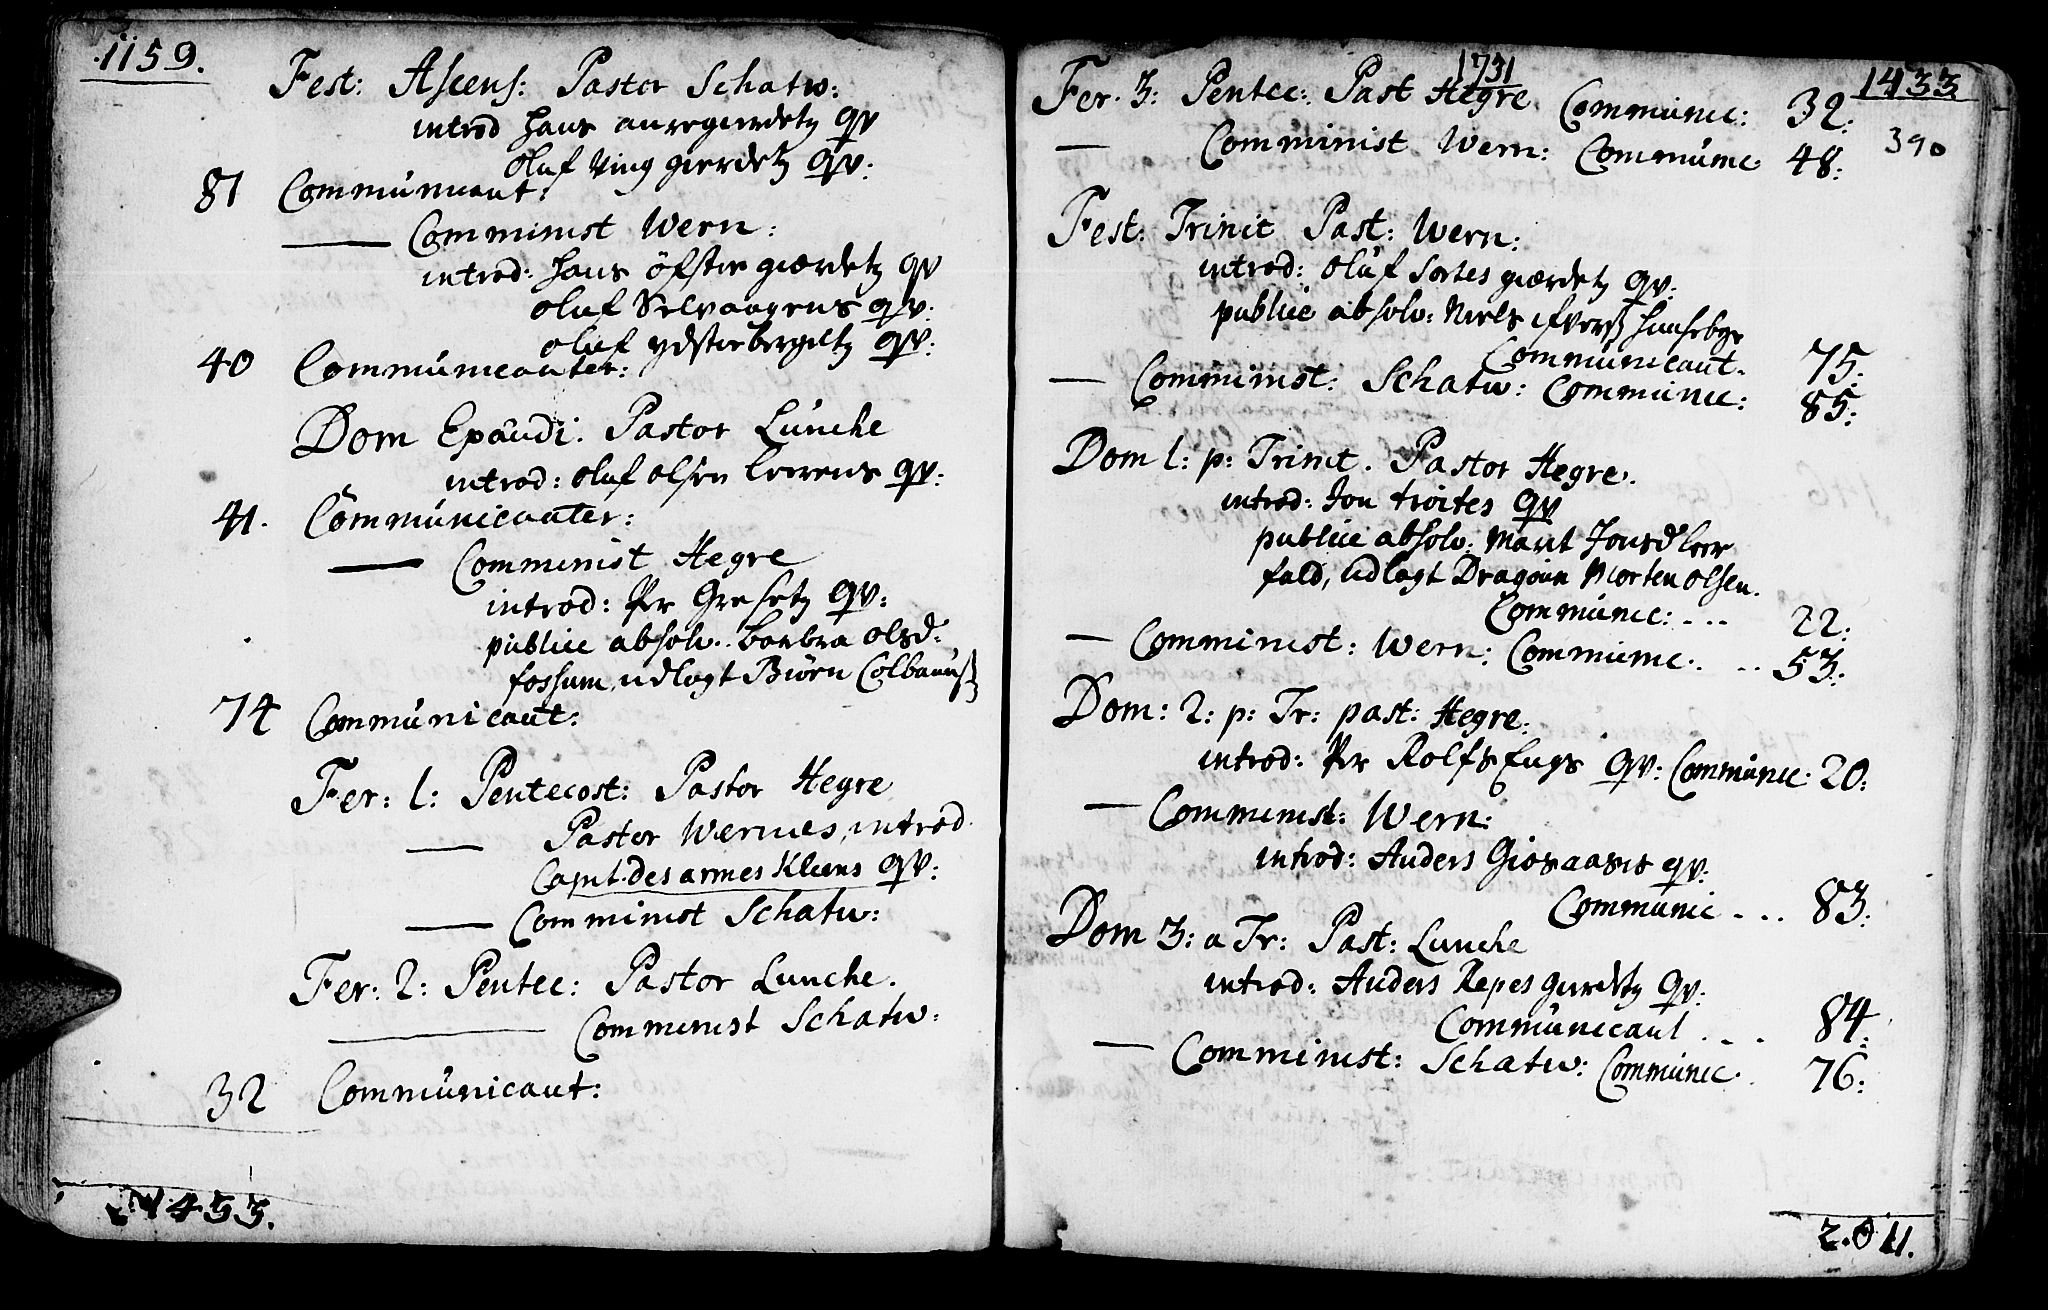 1159.
Fest: Ascens: Pastor Schatw:
introd Hans auregierdetz qv
Oluf Ving gierdetz qv:
81 Communicant:
— Comminist Wern:
introd: Hans öfstie giærdetz qv
Oluf Selvaagens qv:
Oluf ydstiebergetz qv:
40 Communicanter:
Dom Exaudi. Pastor Lunche
introd: Oluf Olsen Leerens qv:
41. Communicanter:
— Comminist Hegre
introd: Per Gresetz qv:
publice absolv. Barbra Olsd:
fossum, udlagt Biörn Colbaus
74 Communicant:
Fer: 1: Pentecost: Pastor Hegre
— Pastor Wernes, introd
Capit: des armes Kleens qv:
— Comminist Schatw:
Fer: 2: Pentec: Pastor Lunche.
— Comminist Schatw:
32 Communicant:
1433.
1731
1433
390
Fer. 3: Pentec: Past Hegre Communic: 32:
— Comminist Wern: Communic 48:
Fest: Trinit Past: Wern:
introd: Oluf Sortes giærdetz qv:
publice absolv: Niels ifvers
Communicant. 75:
— Comminist: Schatw: Communic: 85:
Dom 1: p: Trinit. Pastor Hegre.
introd: Jon troites qv
publice absolv: Marit Jonsd leer
fald, udlagt Dragoun Morten Olsen.
Communic: . . . 22:
— Comminist: Wern: Communic. . . 53:
Dom: 2: p: Tr: past: Hegre:
introd: Per Rolfs Engs qv: Communic: 20:
— Comminist: Wern:
introd: Anders Giosaasis qv:
Communic . . . 83:
Dom 3: a Tr: Past: Lunche
introd: Anders Repes gierdetz qv:
Communicant . . . 84:
— Comminist: Schatw: Communic. 76:
2.011.